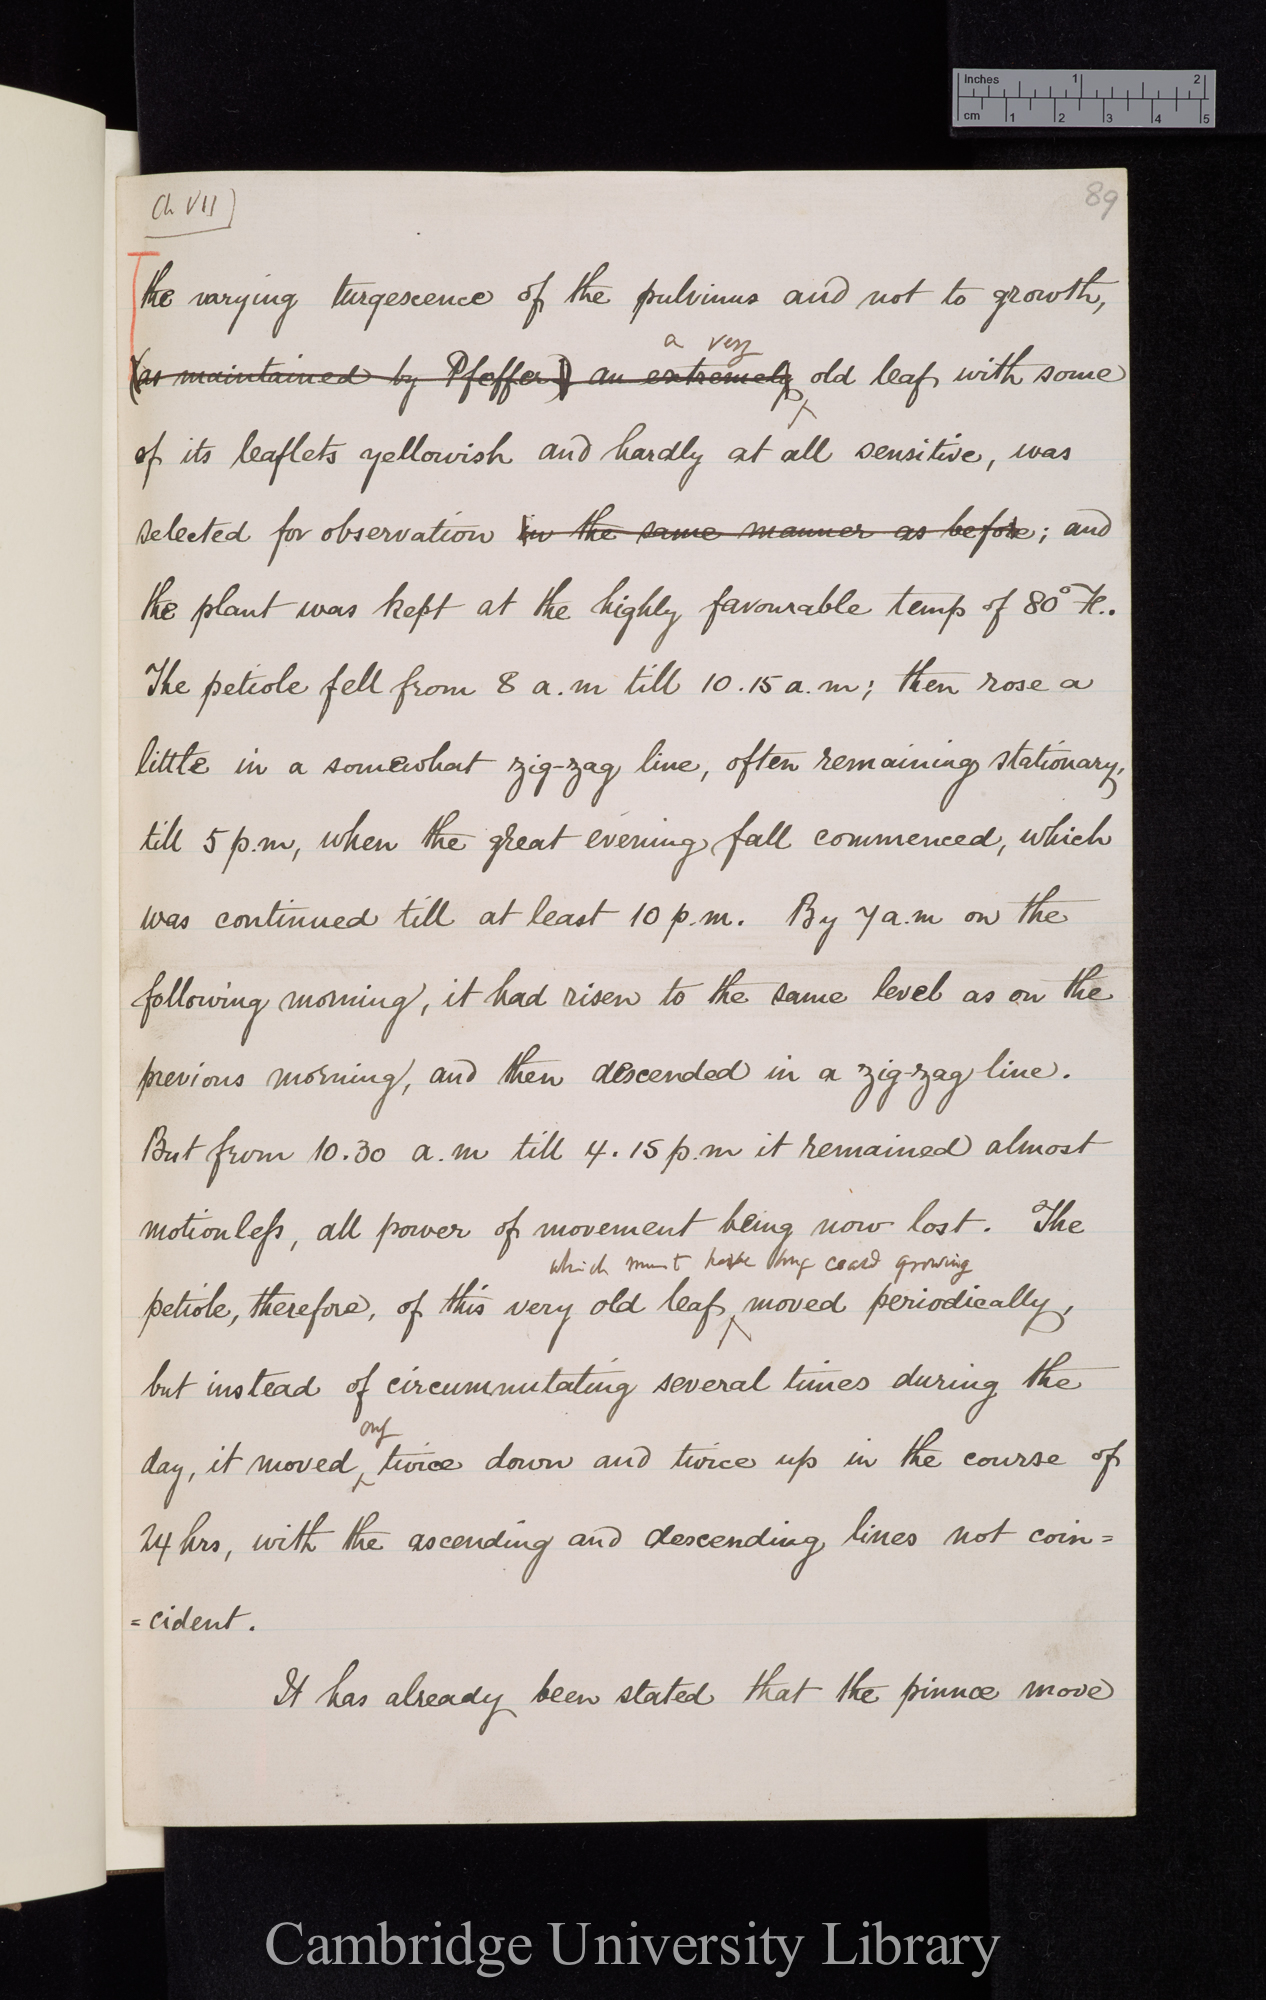 Inches 1 2
cm 1 2 3 4 5
Ch VII
89
the varying turgescence of the pulvinus and not to growth,
a very
(as maintained by Pfeffer) an extremely old leaf with some
of its leaflets yellowish and hardly at all sensitive, was
selected for observation in the same manner as before; and
the plant was kept at the highly favourable temp of 80° F..
The petiole fell from 8 a.m till 10.15 a.m; then rose a
little in a somewhat zig-zag line, often remaining stationary,
till 5 p.m, when the great evening fall commenced, which
was continued till at least 10 p.m. By 7 a.m on the
following morning, it had risen to the same level as on the
previous morning, and then descended in a zig-zag line.
But from 10.30 a.m till 4.15 p.m it remained almost
motionless, all power of movement being now lost. The
which must have long ceased growing
petiole, therefore, of this very old leaf moved periodically,
but instead of circumnutating several times during the
only
day, it moved twice down and twice up in the course of
24 hrs, with the ascending and descending lines not coin=
=cident.
It has already been stated that the pinnæ move
Cambridge University Library